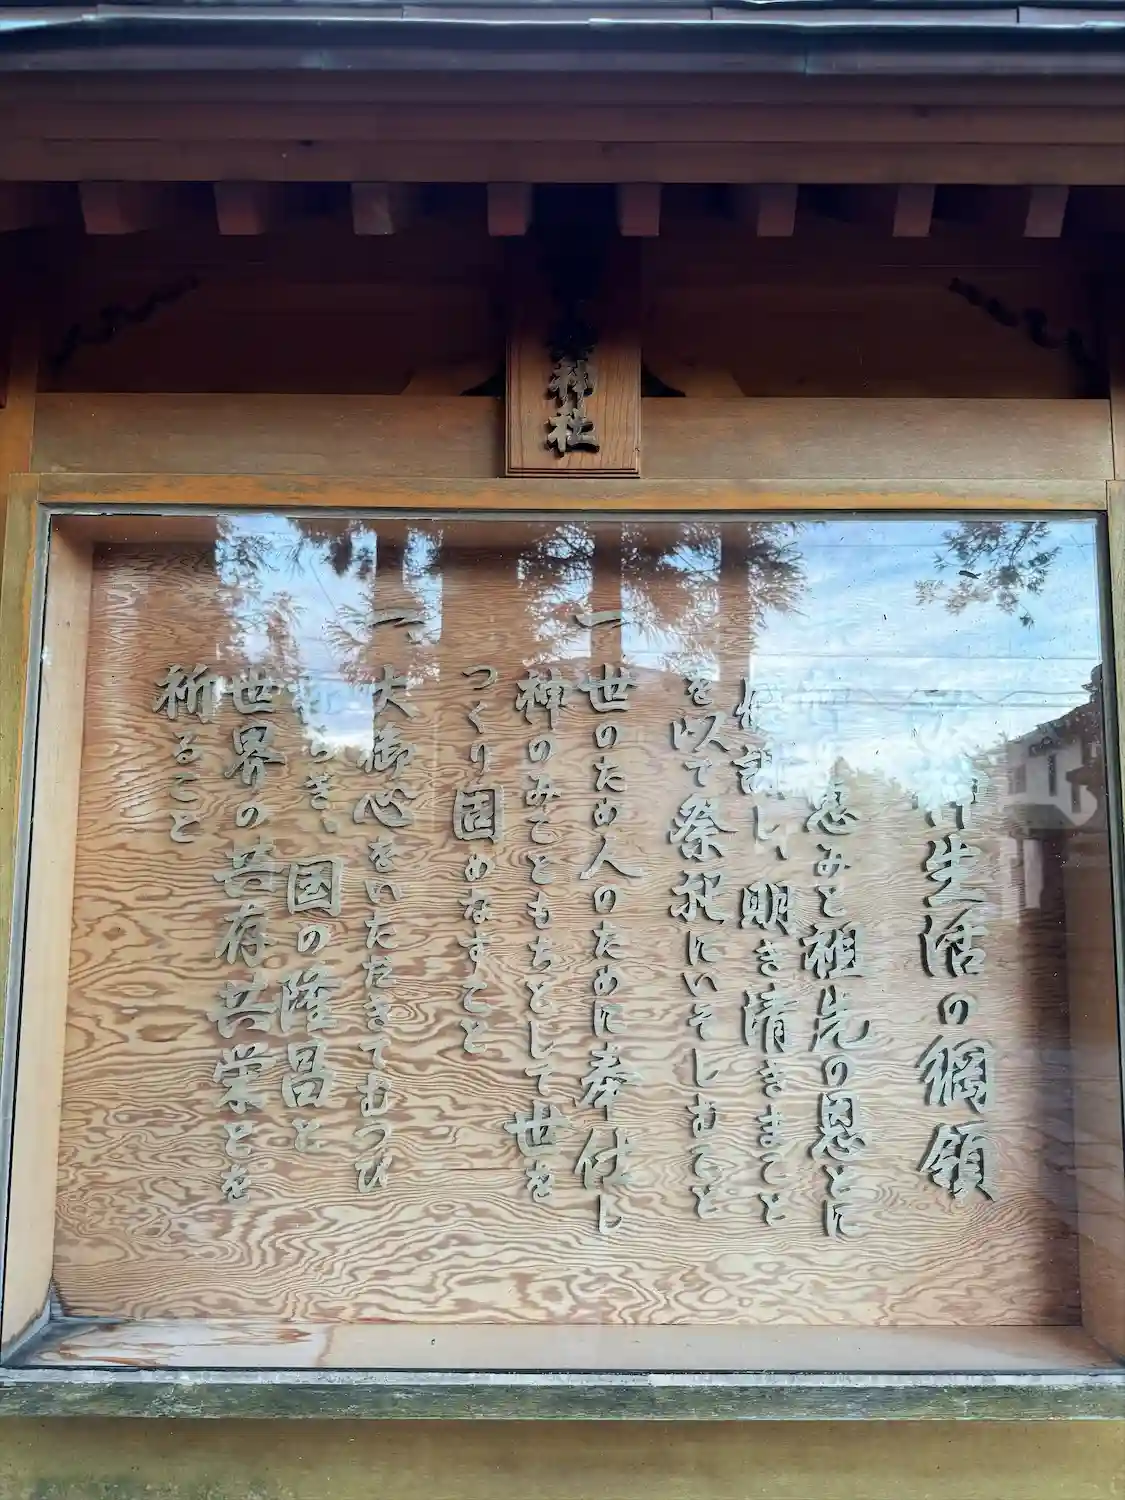 神社
生活の綱領
恵みと祖先の恩とに
感謝し、明き清きまこと
を以て祭祀にいそしむこと
一世のため人のために奉仕し
神のみこともちとして世を
つくり固めなすこと
一、大御心をいただきてむつび
らぎ、国の隆昌と
世界の共存共栄とを
祈ること